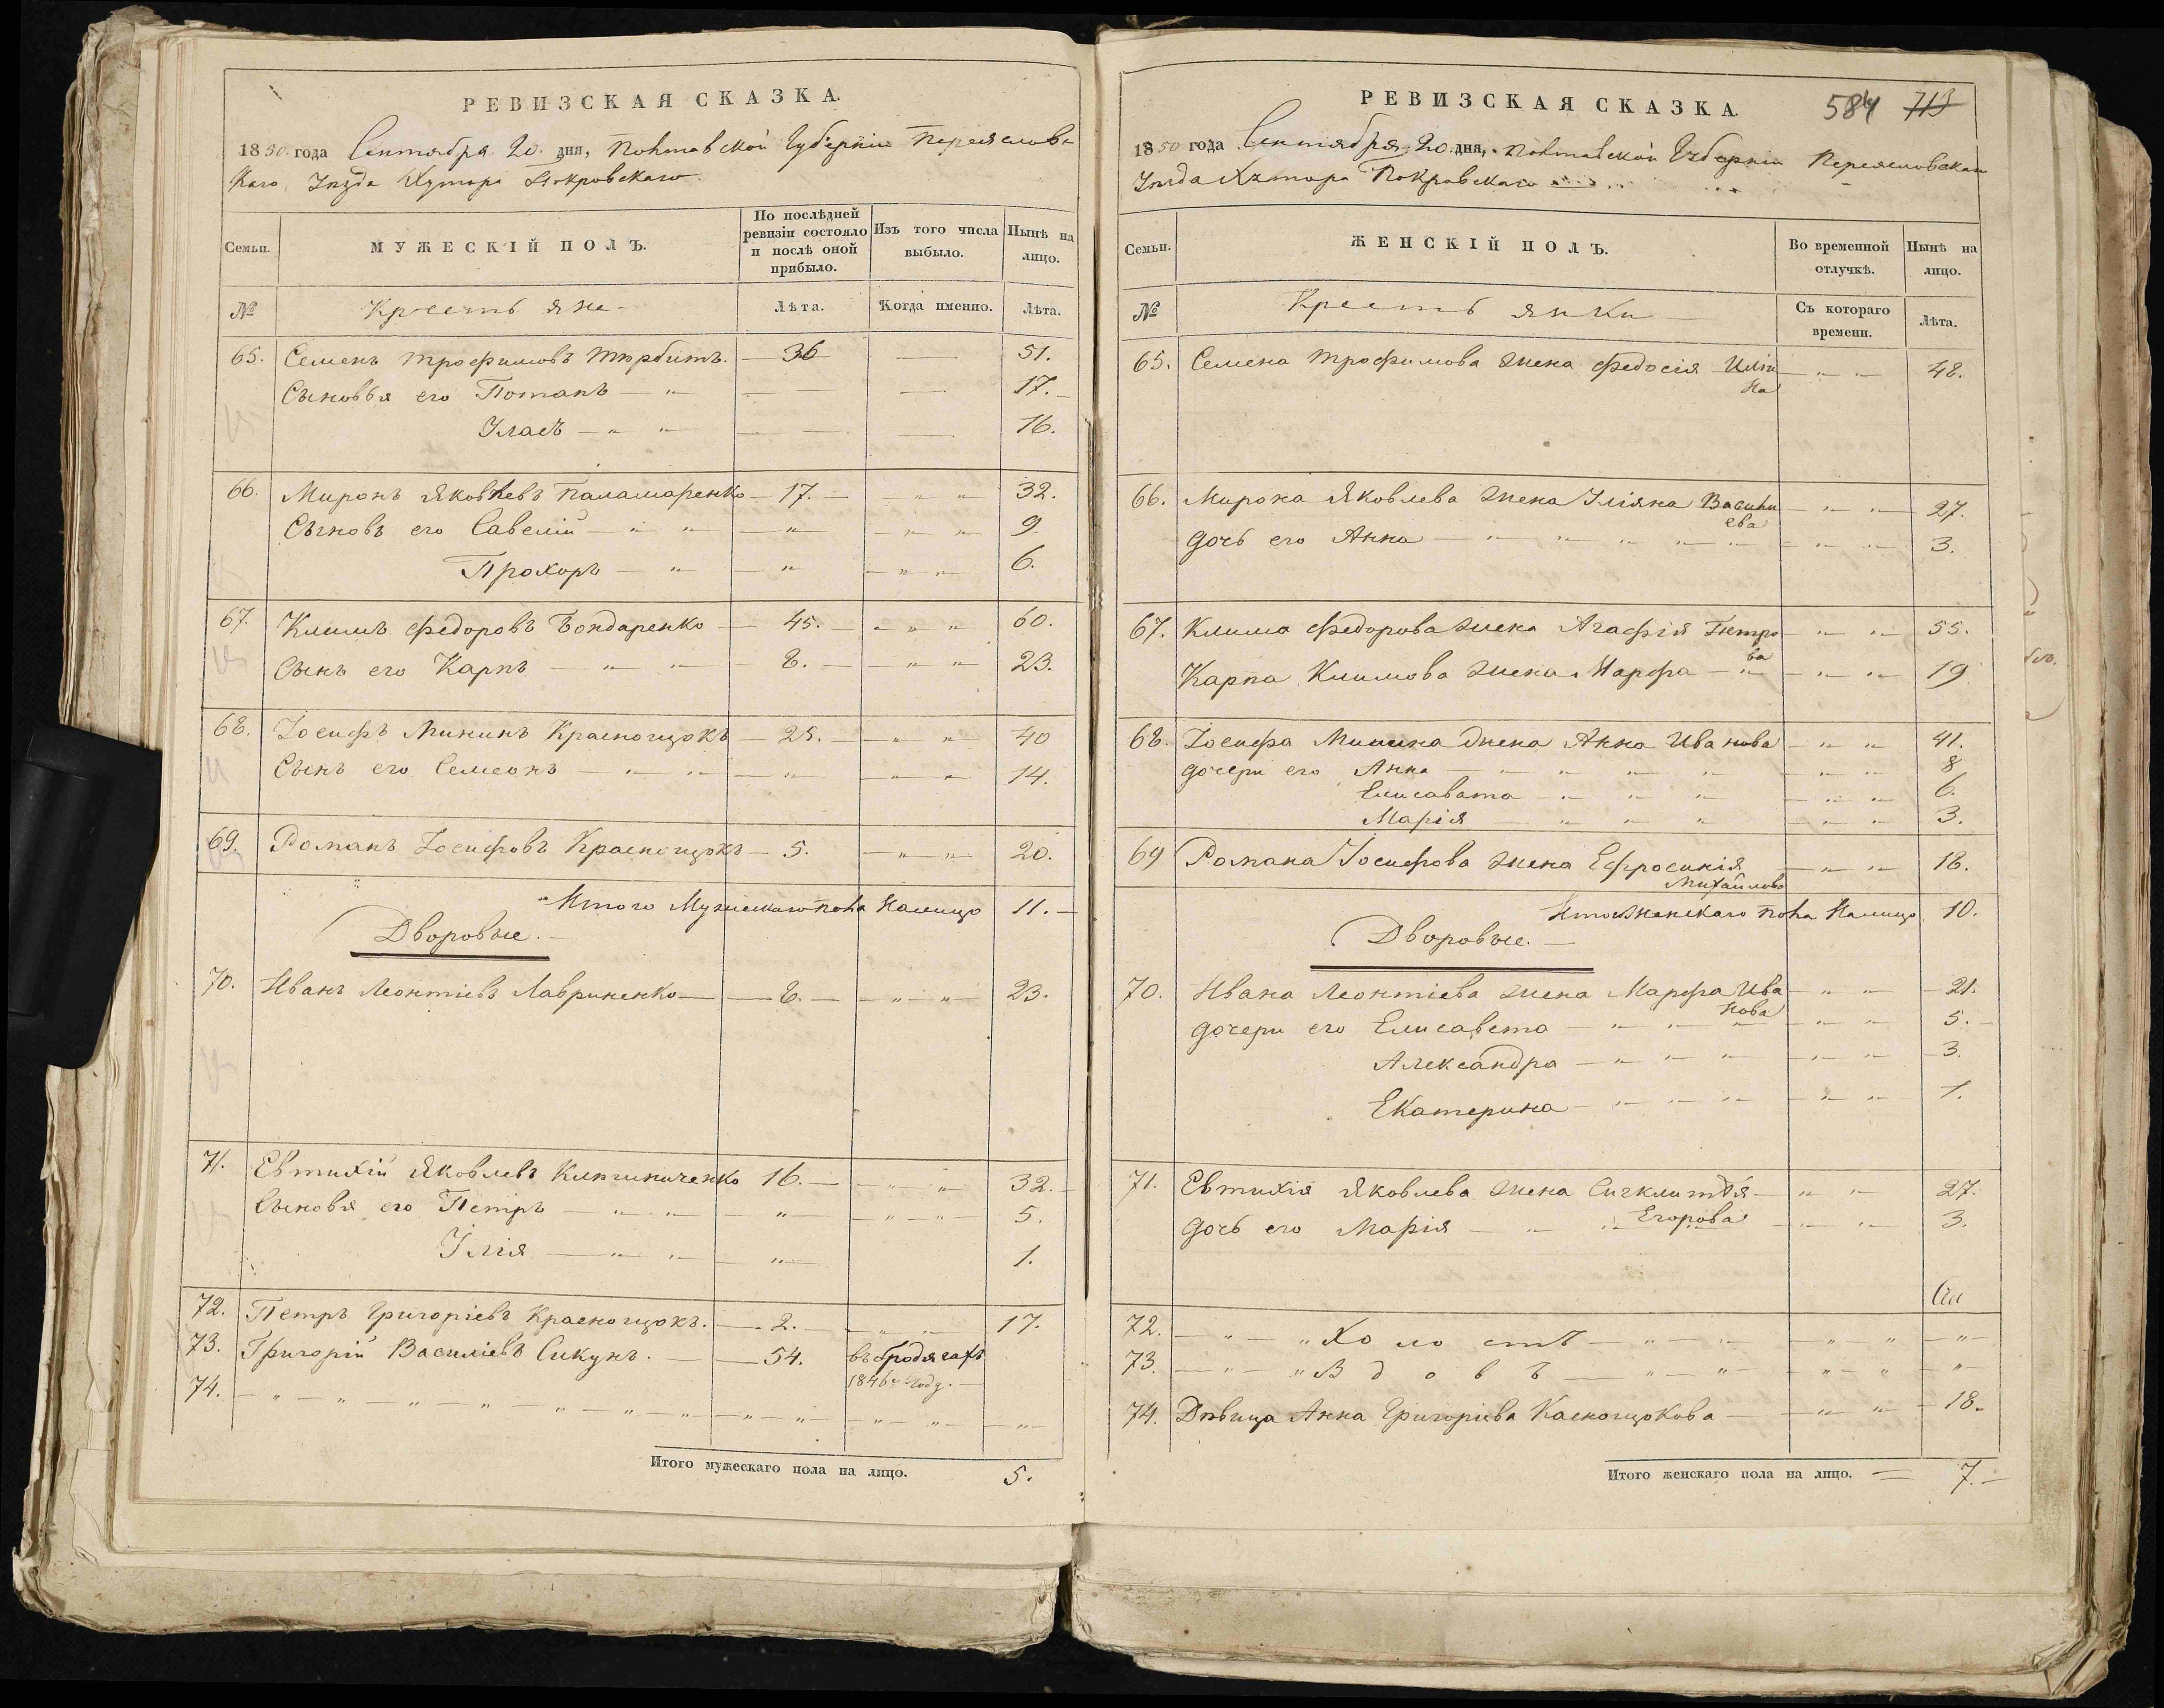 РЕВИЗСКАЯ СКАЗКА.
1850 года Сентября 20 дня, Полтавской Губерніи Переяславс
каго Уезда Хутора Покровскаго
Семьи. МУЖЕСКІЙ ПОЛЪ. По послѣдней ревизіи состояло и послѣ оной прибыло. Изъ того числа выбыло. Нынѣ на лицо.
№ Крестьяне Лѣта. Когда именно. Лѣта.
65. Семенъ Трофимовъ 36 51.
Сыновья его Потапъ 17.
Уласъ 16.
66. Миронъ Яковлевъ Паламаренко 17. 32.
Сыновъ его Савелій 9.
Прохоръ 6.
67. Климъ Федоровъ Бондаренко 45. 60.
Сынъ его Карпъ 8. 23.
68. Іосифъ Мининъ Красногщокъ 25. 40
Сынъ его Семеонъ 14.
69. Романъ Іосифовъ Красногщокъ 5. 20.
Итого Мужескаго пола налицо 11.
Дворовые.
70. Иванъ Леонтіевъ Лавриненко 8. 23.
71. Евтихій Яковлевъ 16. 32.
Сыновя его Петръ 5.
Ілія 1.
72. Петръ Григоріевъ Красногщокъ. 2. 17.
73. Григорій Василіевъ Сикунъ. 54. въ бродягахъ
1846 году.
74.
Итого мужескаго пола на лицо. 5.
РЕВИЗСКАЯ СКАЗКА. 584 713
1850 года Сентября 20 дня, Полтавской Губерніи Переясловскаго
Уезда Хутора Покровскаго
Семьи. ЖЕНСКІЙ ПОЛЪ. Во временной отлучкѣ. Нынѣ на лицо.
№ Крестьянки Съ котораго времени. Лѣта.
65. Семена Трофимова жена Федосія Ильи 48.
на
66. Мирона Яковлева жена Уліяна Васили 27.
ева
дочь его Анна 3.
67. Клима Федорова жена Агафія Петро 55.
ва
Карпа Климова жена Марфа 19
68. Іосифа Минина жена Анна Иванова 41.
дочери его Анна 8
Елисавета 6.
Марія 3.
69 Романа Іосифова жена Ефросинія 18.
Михайлова
Итого Женскаго пола Налицо 10.
Дворовые.
70. Ивана Леонтіева жена Марфа Ива 21.
нова
дочери его Елисавета 5.
Александра 3.
Екатерина 1.
71. Евтихія Яковлева жена Сигклитія 27.
Егорова
дочь его Марія 3.
72. Холостъ
73. Вдовъ
74. Дѣвица Анна Григоріева Касногщокова 18.
Итого женскаго пола на лицо. 7.